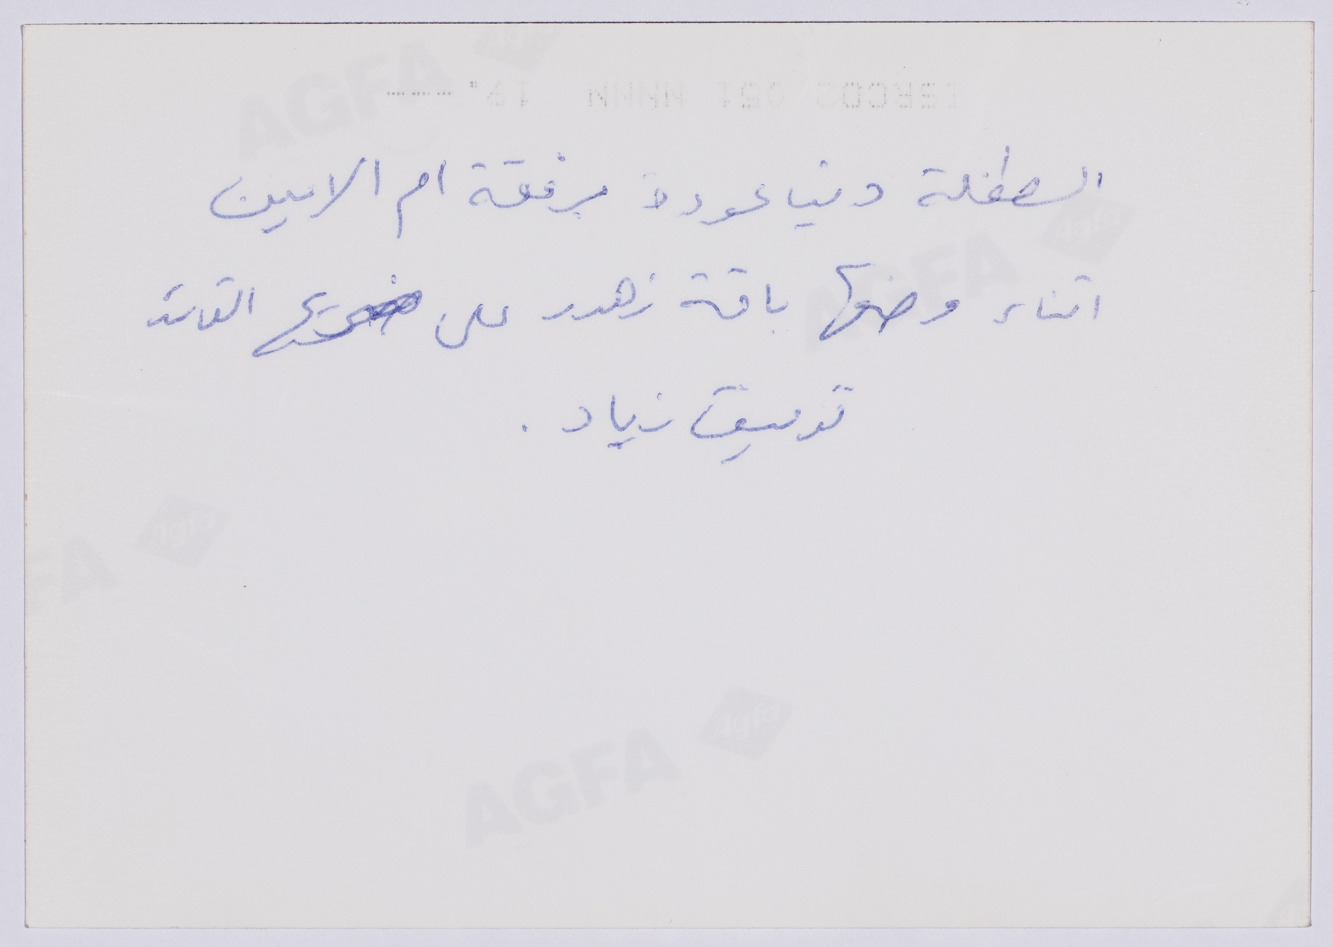 الطفلة دنيا عودة برفقة ام الامين
اثناء وضعها باقة زهور على ضريح القائد
توفيق زياد .
AGFA
AGFA
AGFA